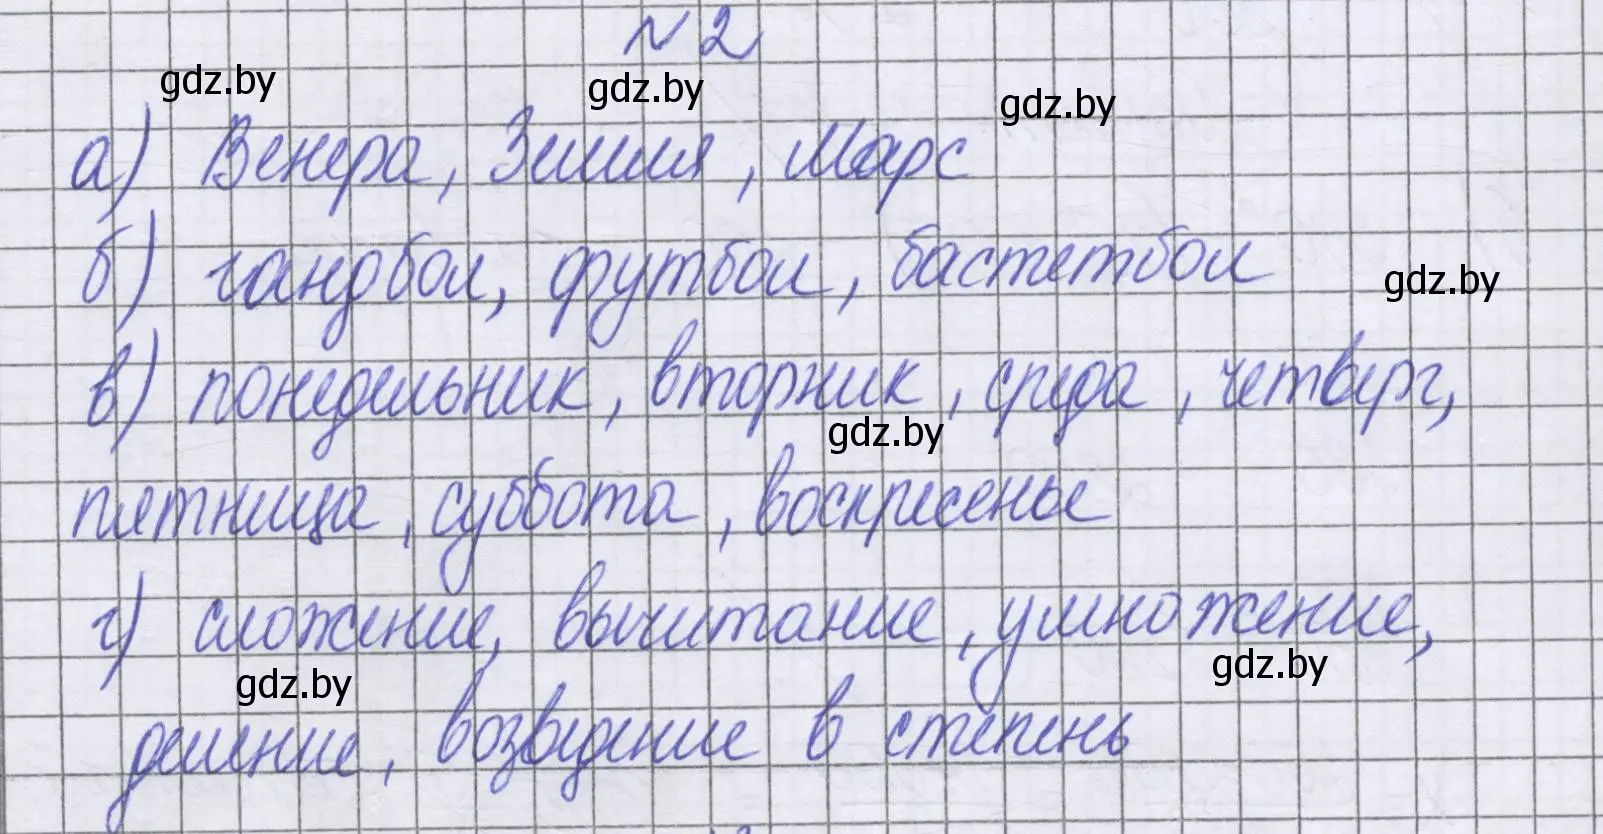 № 2
gdz.by gdz.by gdz.by
а) Венера, Земля, Марс
б) гандбол, футбол, баскетбол
gdz.by
в) понедельник, вторник, среда, четверг,
gdz.by
пятница, суббота, воскресенье
г) сложение, вычитание, умножение,
gdz.by gdz.by
деление, возведение в степень